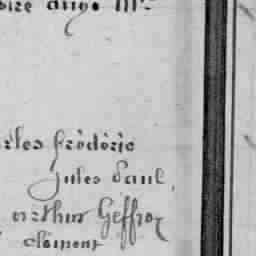 oire auge Mr
rles frédéric
Jules Paul,
arthur Geffroy
clément